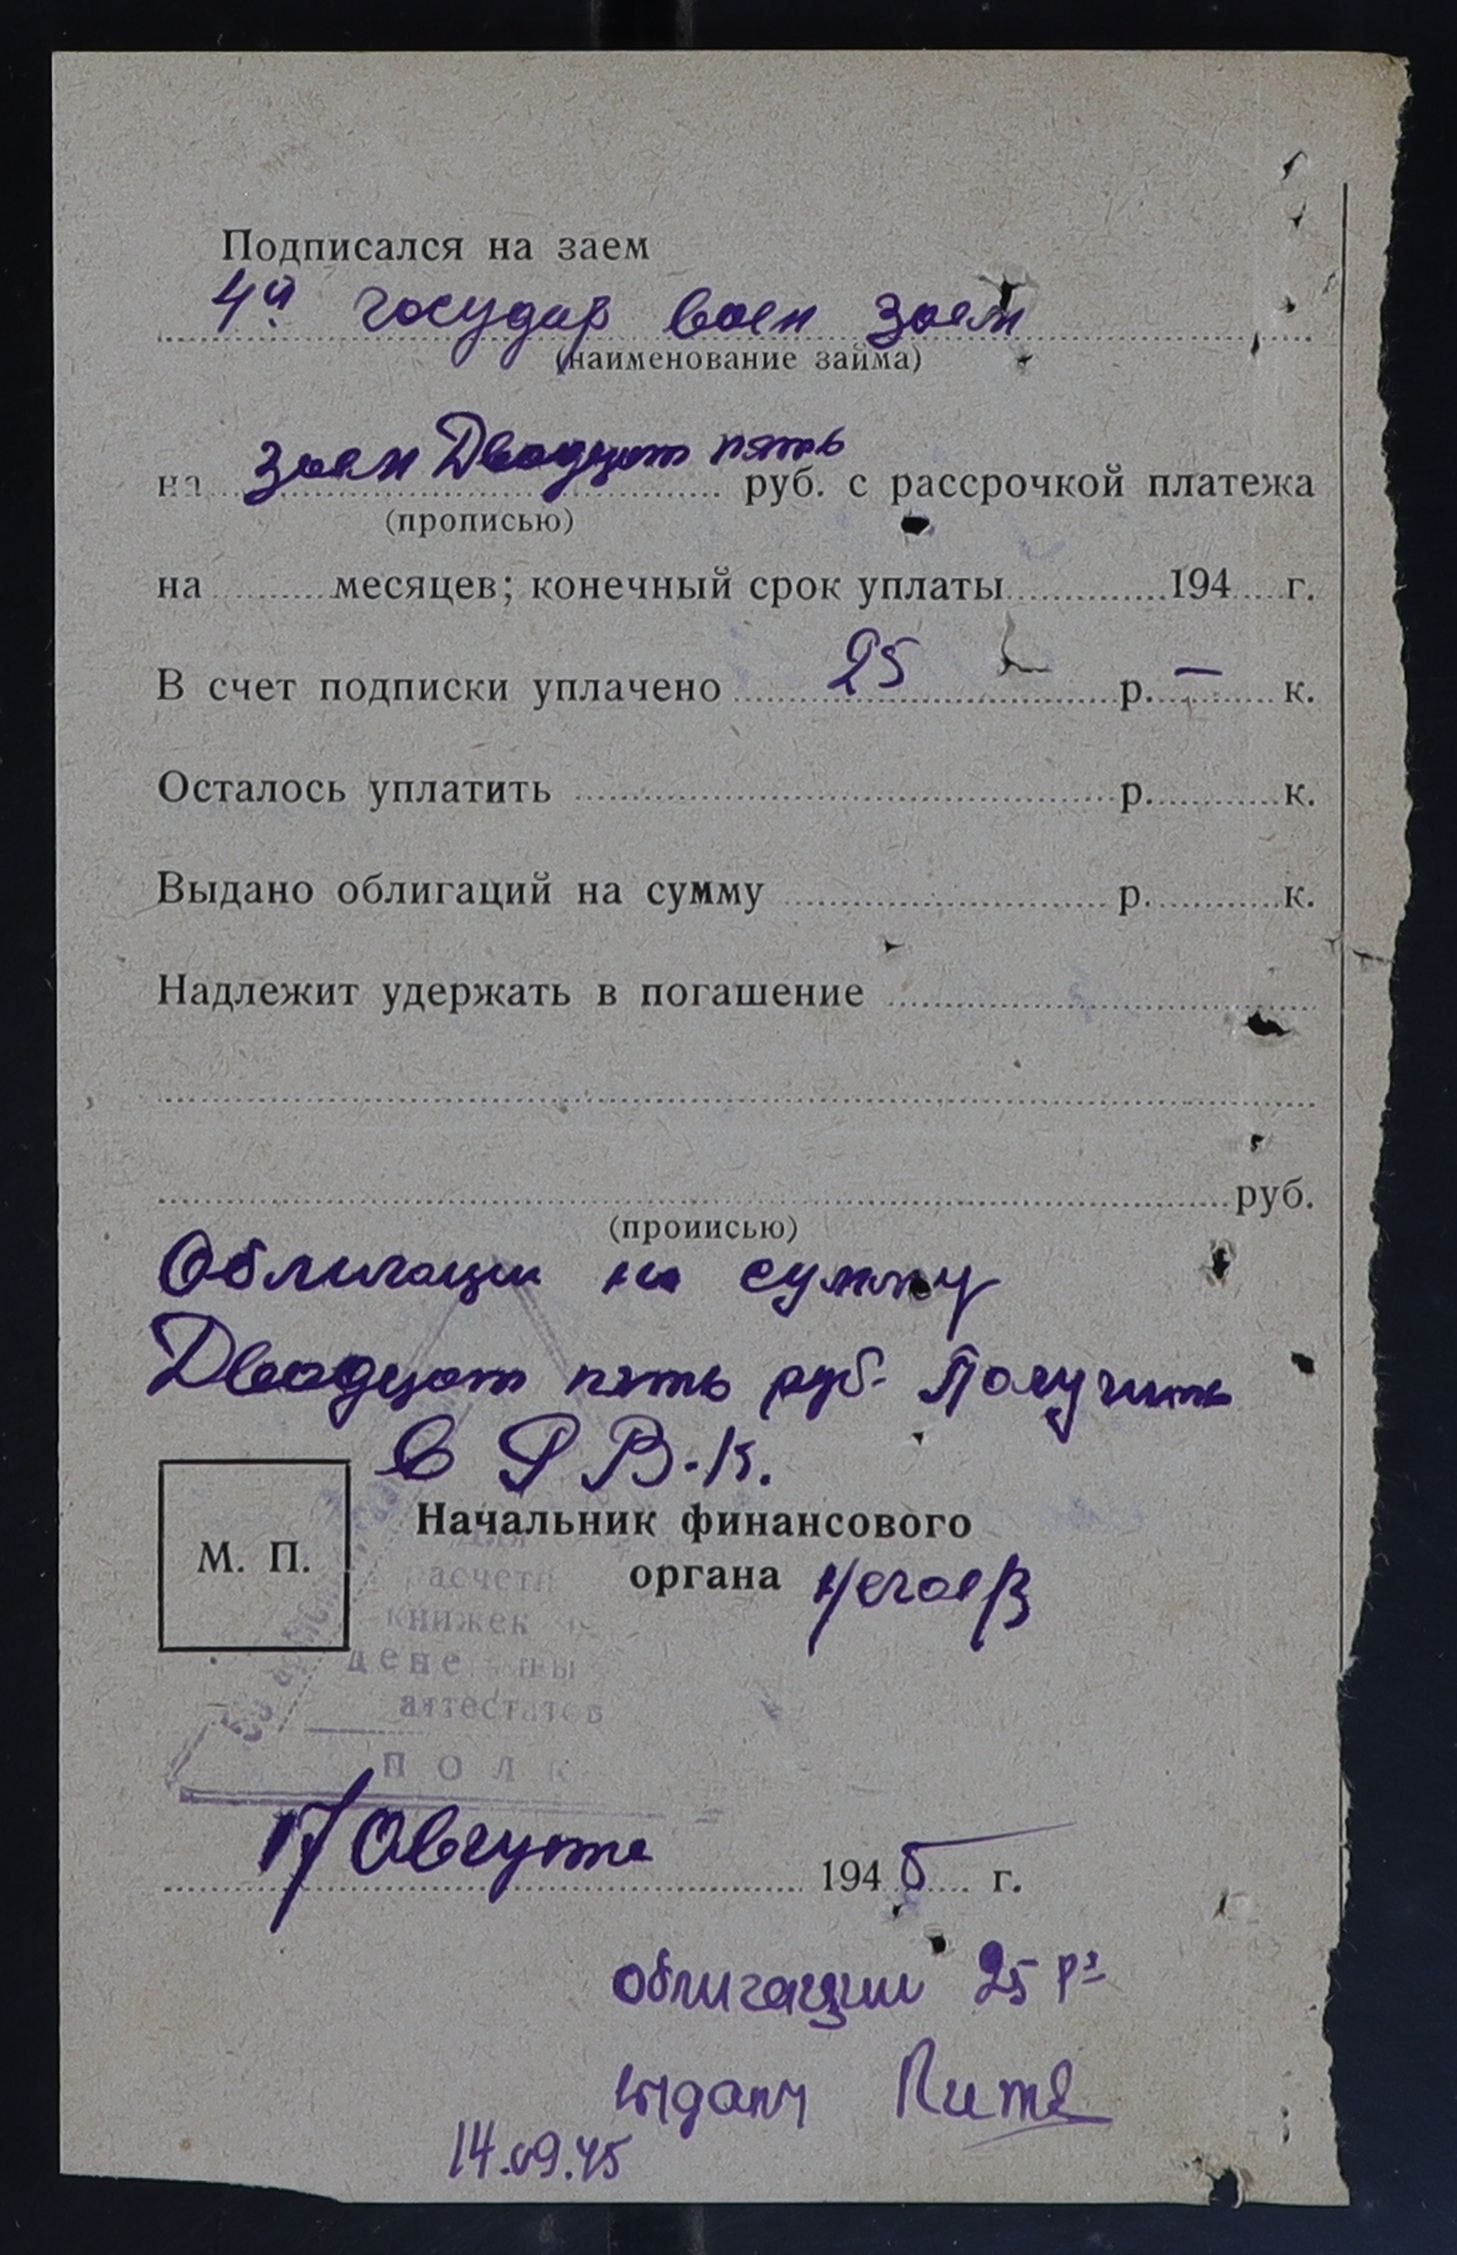 Подписался на заем
4й государ воен заем
(наименование займа)
на заем Двадцат пять руб. с рассрочкой платежа
(прописью)
на месяцев; конечный срок уплаты 194 г.
В счет подписки уплачено 25 р. — к.
Осталось уплатить р. к.
Выдано облигаций на сумму р. к.
Надлежит удержать в погашение
руб.
(проиисью)
Облигации на сумму
Двадцат пять руб. Получить
в Р В.К.
М. П.
Начальник финансового
органа
для
расчетн
книжек и
дене ны
аттестатов
ПОЛК
17 Августа 1945 г.
облигации 25 р
выдал
14.09.45